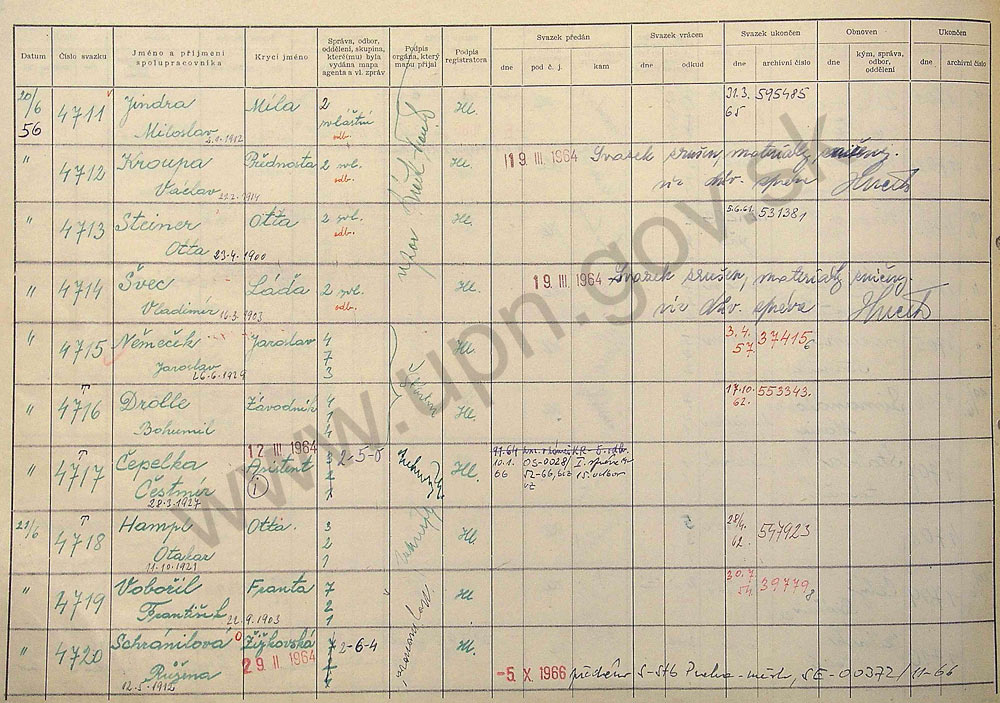 Datum
Číslo svazku
Jméno a příjmení
spolupracovníka
Krycí jméno
Správa, odbor,
oddělení, skupina,
které(mu) byla
vydána mapa
agenta a vl. zpráv
Podpis
orgána, který
mapu přijal
Podpis
registratora
Svazek předán
dne
pod č. j.
kam
Svazek vrácen
dne
odkud
Svazek ukončen
dne
archivní číslo
Obnoven
dne
kým, správa,
odbor,
oddělení
Ukončen
dne
archivní číslo
20/6
56
4711
Jindra
Miloslav
Míla
2
zvláštní
odb.
Hl.
31.3.
65
595485
"
4712
Kroupa
Václav
Přednosta
2 zvl.
odb.
Hl.
19 III 1964
Svazek zrušen, materiály zničeny.
viz
"
4713
Steiner
Otta 23.4.1900
Otta
2 zvl.
odb.
Hl.
5.6.61.
531381
"
4714
Švec
Vladimír 16.3.1903
Láďa
2 zvl.
odb.
Hl.
19 III 1964
Svazek zrušen, materiály zničeny.
viz
"
4715
Němeček
Jaroslav
26.6.1929
Jaroslav
4
7
3
Hl.
3.4.
57
37415
6
"
4716
Drolle
Bohumil
Závodník
4
1
Hl.
17.10.
62.
553343.
"
4717
Čepelka
Čestmír
28.3.1927
12 III 1964
Asistent
i
2-5-0
Hl.
10.1.
66
OS-0028/
52-66,
I. správa
15. odbor
21/6
4718
Hampl
Otakar
11.10.1921
Otta.
3
2
1
Hl.
28/4.
62.
547923
"
4719
Vobořil
František 22.9.1903
Franta
7
2
1
Hl
30.7
39779
8
"
4720
Schránilová
Růžena
12.5.1912
Žižkovská
29 II 1964
2-6-4
Hl.
-5. X. 1966
S-StB Praha-město, SE-00372/11-66
www.upn.gov.sk